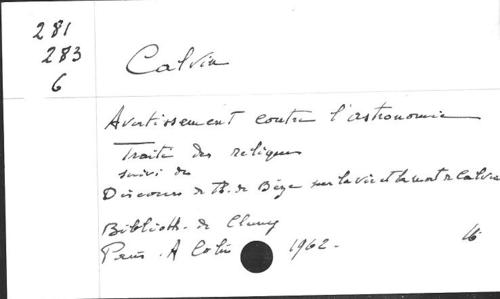 281
283
6
Calvin
Avertissement contre l'astronomie
Traité des reliques
suivi du
Discours de Th. de Bèze sur la vie et la mort de Calvin
Biblioth. de Cluny
Paris. A Colin 1962.